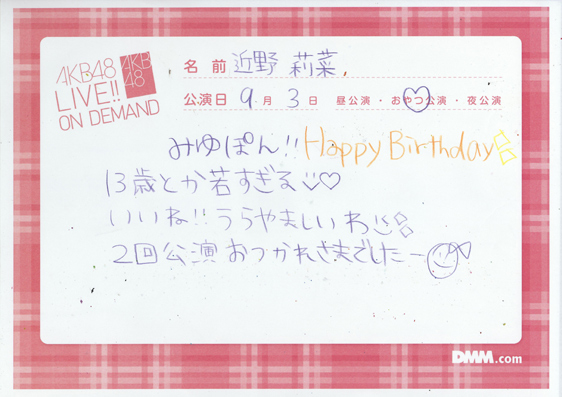 AKB48
LIVE!!
ON DEMAND
AKB
48
名 前 近野 莉菜
公演日 9 月 3 日 昼公演・おやつ公演・夜公演
みゆぽん!! Happy Birthday
13歳とか若すぎる
いいね!! うらやましいわ
2回公演おつかれさまでしたー
DMM.com